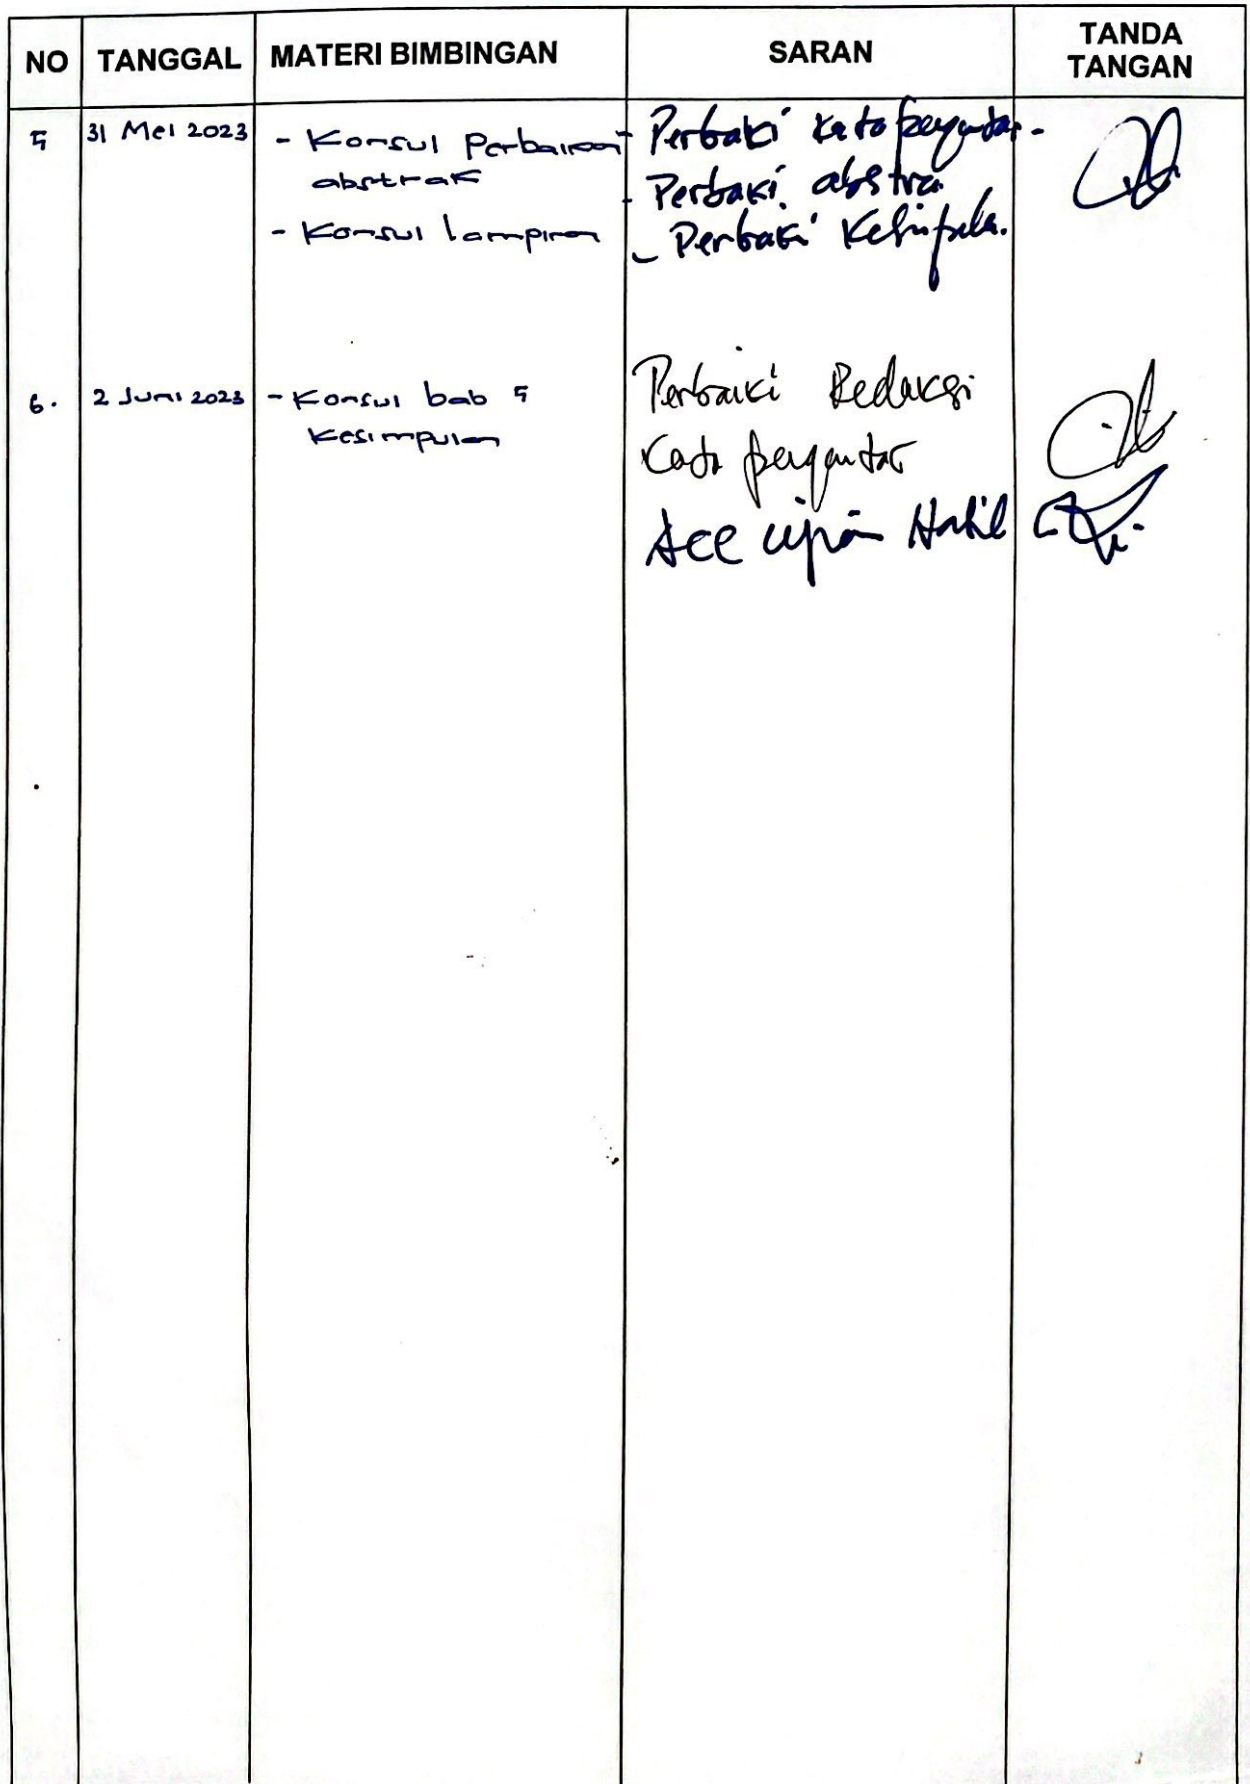 NO TANGGAL MATERI BIMBINGAN SARAN TANDA TANGAN
5 31 Mei 2023
- Konsul Perbaikan
abstrak
- Konsul lampiran
- Perbaki kata pengantar.
- Perbaki abstra
- Perbaki
6. 2 Juni 2023
- Konsul bab 5
Kesimpulan
Perbaiki Redaksi
Kata pengantar
Acc ujian Hasil